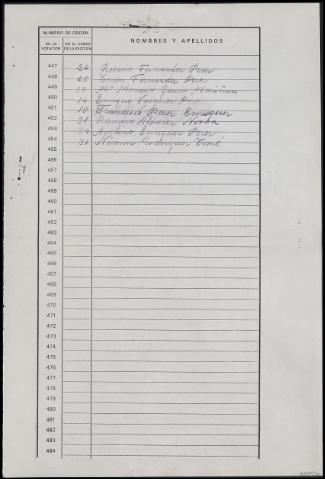 NUMERO DE ORDEN
EN LA VOTACION
EN EL CENSO DE LA SECCION
NOMBRES Y APELLIDOS
447 24 Rosario Fernandez Perez
448 25 Fernandez Perez
449 Mª Garcia
450 14 Enrique
451 10 Francisco Perez Enriquez
452 21 Ramiro Alvarez
453 24 Avelino Enriquez Perez
454 31 Rodriguez
455
456
457
458
459
460
461
462
463
464
465
466
467
468
469
470
471
472
473
474
475
476
477
478
479
480
481
482
483
484